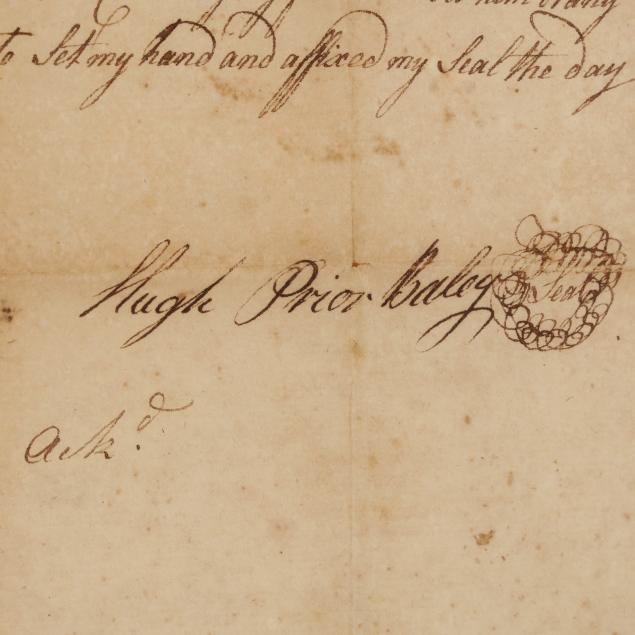 him or any
to Set my hand and affixed my Seal the day
Hugh Prior Baley Seal
Ack.d